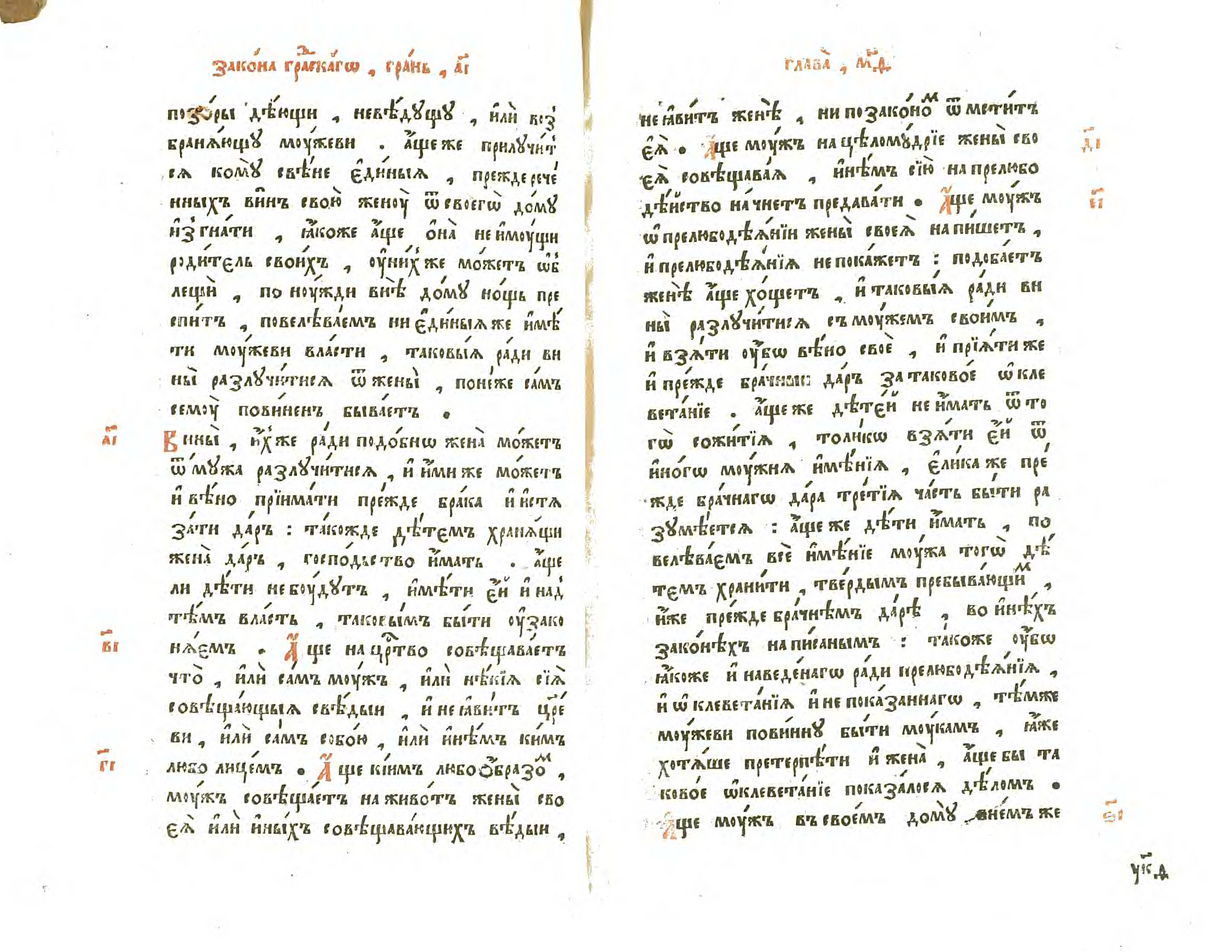 зако́на гра́дскагѡ , гра́нь , а҃і
позо́ры дѣ́ющи , невѣ́дꙋщꙋ , и҆лѝ воз
браня́ющꙋ мꙋ́жеви . а҆́ще же прилꙋчи́т
сѧ комꙋ̀ свѣ́не є҆ди́ныѧ , прежде рече́
нныхъ ви́нъ свою̀ женꙋ̀ ѿ своегѡ̀ до́мꙋ
и҆згна́ти , ꙗ҆́коже а҆́ще ѻ҆на̀ не и҆мꙋ́щи
роди́тель свои́хъ , ᲂу҆ ни́хже мо́жетъ ѡ҆б
лещѝ , по нꙋ́жди внѣ̀ до́мꙋ но́щь пре
спи́тъ , повелѣва́емъ ни є҆ди́ныѧже и҆мѣ́
ти мꙋ́жеви вла́сти , таковы́ѧ ра́ди ви
ны̀ разлꙋчи́тисѧ ѿ жены̀ , поне́же са́мъ
семꙋ̀ пови́ненъ быва́етъ .
а҃і
Вины̀ , и҆́хже ра́ди подо́бнѡ жена̀ мо́жетъ
ѿ мꙋ́жа разлꙋчи́тисѧ , и҆ и҆́миже мо́жетъ
и҆ вѣ́но прїима́ти пре́жде бра́ка и҆ и҆стѧ
за́ти да́ръ : та́кожде дѣ́темъ хранѧ́щи
жена̀ да́ръ , госпо́дьство и҆́мать . а҆́ще
ли дѣ́ти не бꙋ́дꙋтъ , и҆мѣ́ти є҆́й и҆ над
тѣ́мъ вла́сть , таковы́мъ бы́ти ᲂу҆зако
нѧ́емъ . А҆́ще на црⷭ҇тво совѣщава́етъ
в҃і
что̀ , и҆лѝ са́мъ мꙋ́жъ , и҆лѝ нѣ́кїѧ сїѧ̀
совѣща́ющыѧ свѣ́дыи , и҆ не ꙗ҆ви́тъ цр҃е
ви , и҆лѝ са́мъ собо́ю , и҆лѝ и҆нѣ́мъ ки́мъ
г҃і
любо лице́мъ . А҆́ще кі́имъ любо ѻ҆́бразоⷨ ,
мꙋ́жъ совѣща́етъ на живо́тъ жены̀ сво
еѧ̀ и҆лѝ и҆ны́хъ совѣщава́ющихъ вѣ́дыи ,
глава̀ , м҃д
не ꙗ҆ви́тъ женѣ̀ , ни по зако́ноⷨ ѿмсти́тъ
є҆ѧ̀ . А҆́ще мꙋ́жъ на цѣломꙋ́дрїе жены̀ сво
д҃і
еѧ̀ совѣщава́ѧ , и҆нѣ́мъ сїю̀ на прелюбо
дѣ́йство начне́тъ предава́ти . А҆́ще мꙋ́жъ
є҃і
ѡ҆ прелюбодѣѧ́нїи жены̀ своеѧ̀ напи́шетъ ,
и҆ прелюбодѣѧ́нїѧ не пока́жетъ : подоба́етъ
женѣ̀ а҆́ще хо́щетъ , и҆ таковы́ѧ ра́ди ви
ны̀ разлꙋчи́тисѧ съ мꙋ́жемъ свои́мъ ,
и҆ взѧ́ти ᲂу҆́бѡ вѣ́но своѐ , и҆ прїѧ́ти же
и҆ пре́жде бра́чныи да́ръ за таково́е ѡ҆кле
вета́нїе . а҆́ще же дѣте́й не и҆́мать ѿ то
гѡ̀ сожи́тїѧ , толи́кѡ взѧ́ти є҆́й ѿ
и҆но́гѡ мꙋ́жнѧ и҆мѣ́нїѧ , є҆ли́ка же пре́
жде бра́чнагѡ да́ра тре́тїѧ ча́сть бы́ти ра
зꙋмѣ́етсѧ : а҆́ще же дѣ́ти и҆́мать , по
велѣва́емъ всѐ и҆мѣ́нїе мꙋ́жа тогѡ̀ дѣ́
темъ храни́ти , тве́рдымъ пребыва́ющиⷨ ,
и҆́же пре́жде бра́чнѣмъ да́рѣ , во и҆нѣ́хъ
зако́нѣхъ напи́санымъ : та́коже ᲂу҆́бѡ
ꙗ҆́коже и҆ наведе́нагѡ ра́ди прелюбодѣѧ́нїѧ ,
и҆ ѡ҆клевета́нїѧ и҆ не пока́заннагѡ , тѣ́мже
мꙋ́жеви пови́ннꙋ бы́ти мꙋ́камъ , ꙗ҆́же
хотѧ́ше претерпѣ́ти и҆ жена̀ , а҆́ще бы та
ково́е ѡ҆клевета́нїе показа́лосѧ дѣ́ломъ .
А҆́ще мꙋ́жъ въ свое́мъ домꙋ̀ , внѐмъ же
ѕ҃і
ук҃д